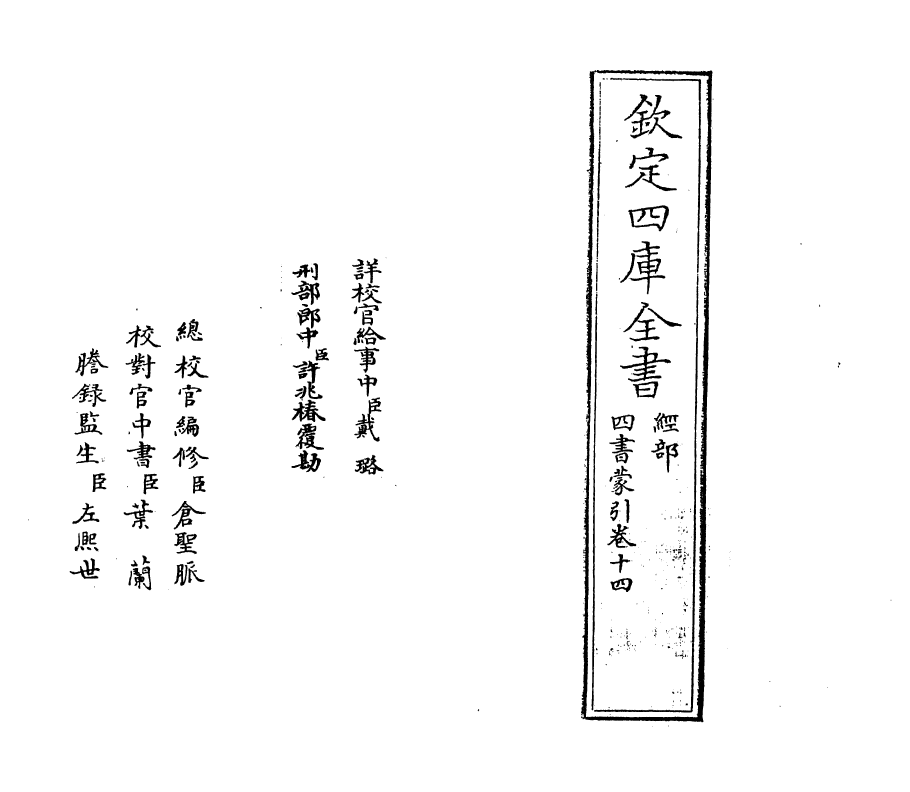 欽定四庫全書
經部
四書蒙引卷十四
詳校官給事中臣戴璐
刑部郎中臣許兆椿覆勘
總校官編修臣倉聖脈
校對官中書臣葉蘭
謄錄監生臣左熈世